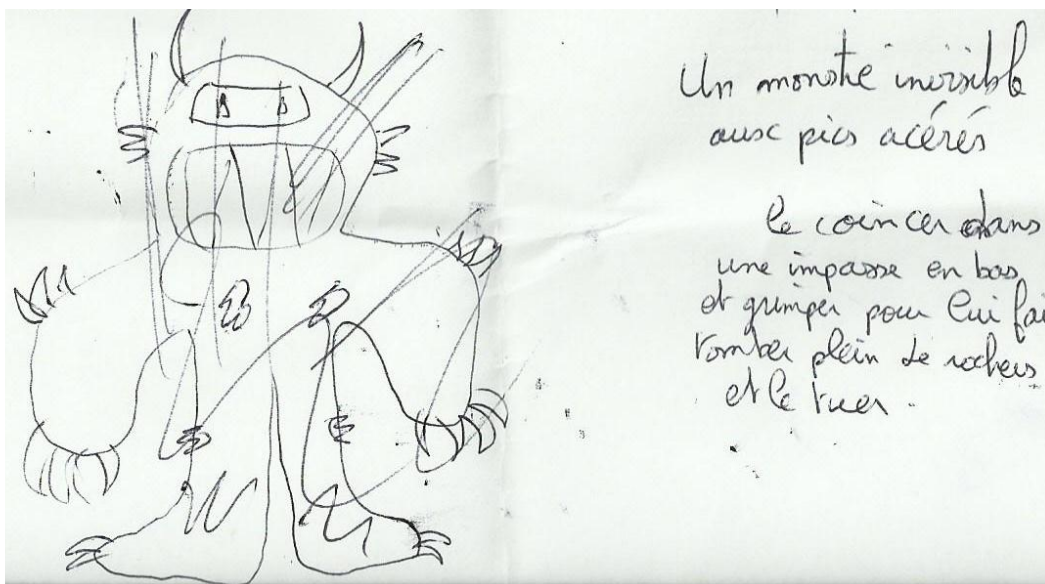 Un monstre invisible
aux pics acérés
le coincer dans
une impasse en bas
et grimper pour lui fai
tomber plein de rochers
et le tuer.